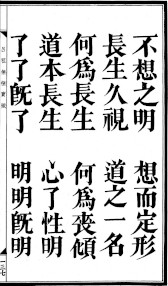 不想之明　想而定形
長生久視　道之一名
何爲長生　何爲喪傾
道本長生　心了性明
了了旣了　明明旣明